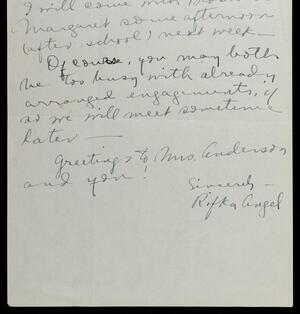 I will come with
Margaret some afternoon
(after school) next week —
Of course, you may both
be too busy with already
arranged engagements, if
so we will meet sometime
later —
Greetings to Mrs. Anderson
and you!
Sincerely —
Rifka Angel